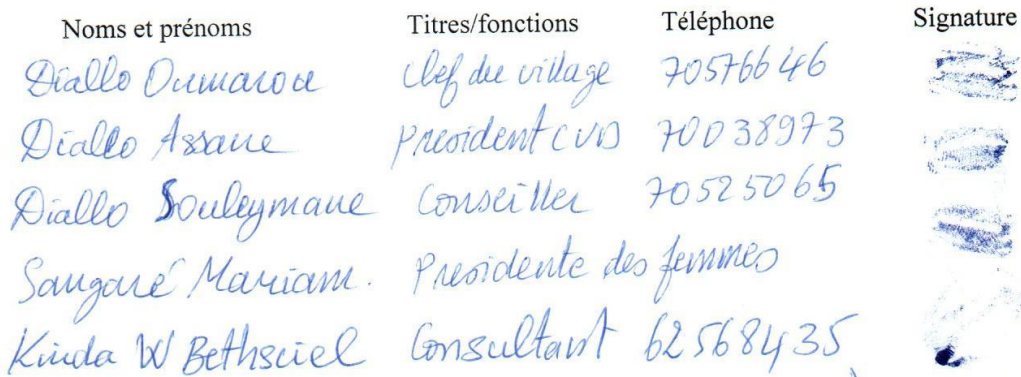 Noms et prénoms Titres/fonctions Téléphone Signature
Diallo Oumarou Chef du village 70576646
Diallo Assane President CVD 70038973
Diallo Souleymane Conseiller 70525065
Sangaré Mariam. Presidente des femmes
Kinda W Bethsciel Consultant 62568435